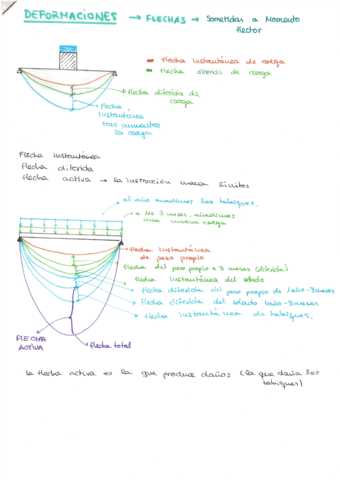 DEFORMACIONES → FLECHAS → Sometidas a Momento
flector
flecha instantánea de carga
flecha diferida de carga
flecha diferida de
carga
flecha
instantánea
tras aumentar
la carga
Flecha instantánea
flecha diferida
flecha activa → la instrucción marca límites
al año añadimos los tabiques.
a los 3 meses, añadimos
una nueva carga
flecha instantánea
de peso propio
flecha del peso propio a 3 meses (diferida)
flecha instantánea del solado
flecha diferida del peso propio de 1año-3meses
flecha diferida del solado 1año-3meses
flecha instantánea de tabiques.
FLECHA
ACTIVA
flecha total
la flecha activa es la que produce daños (la que daña los
tabiques)